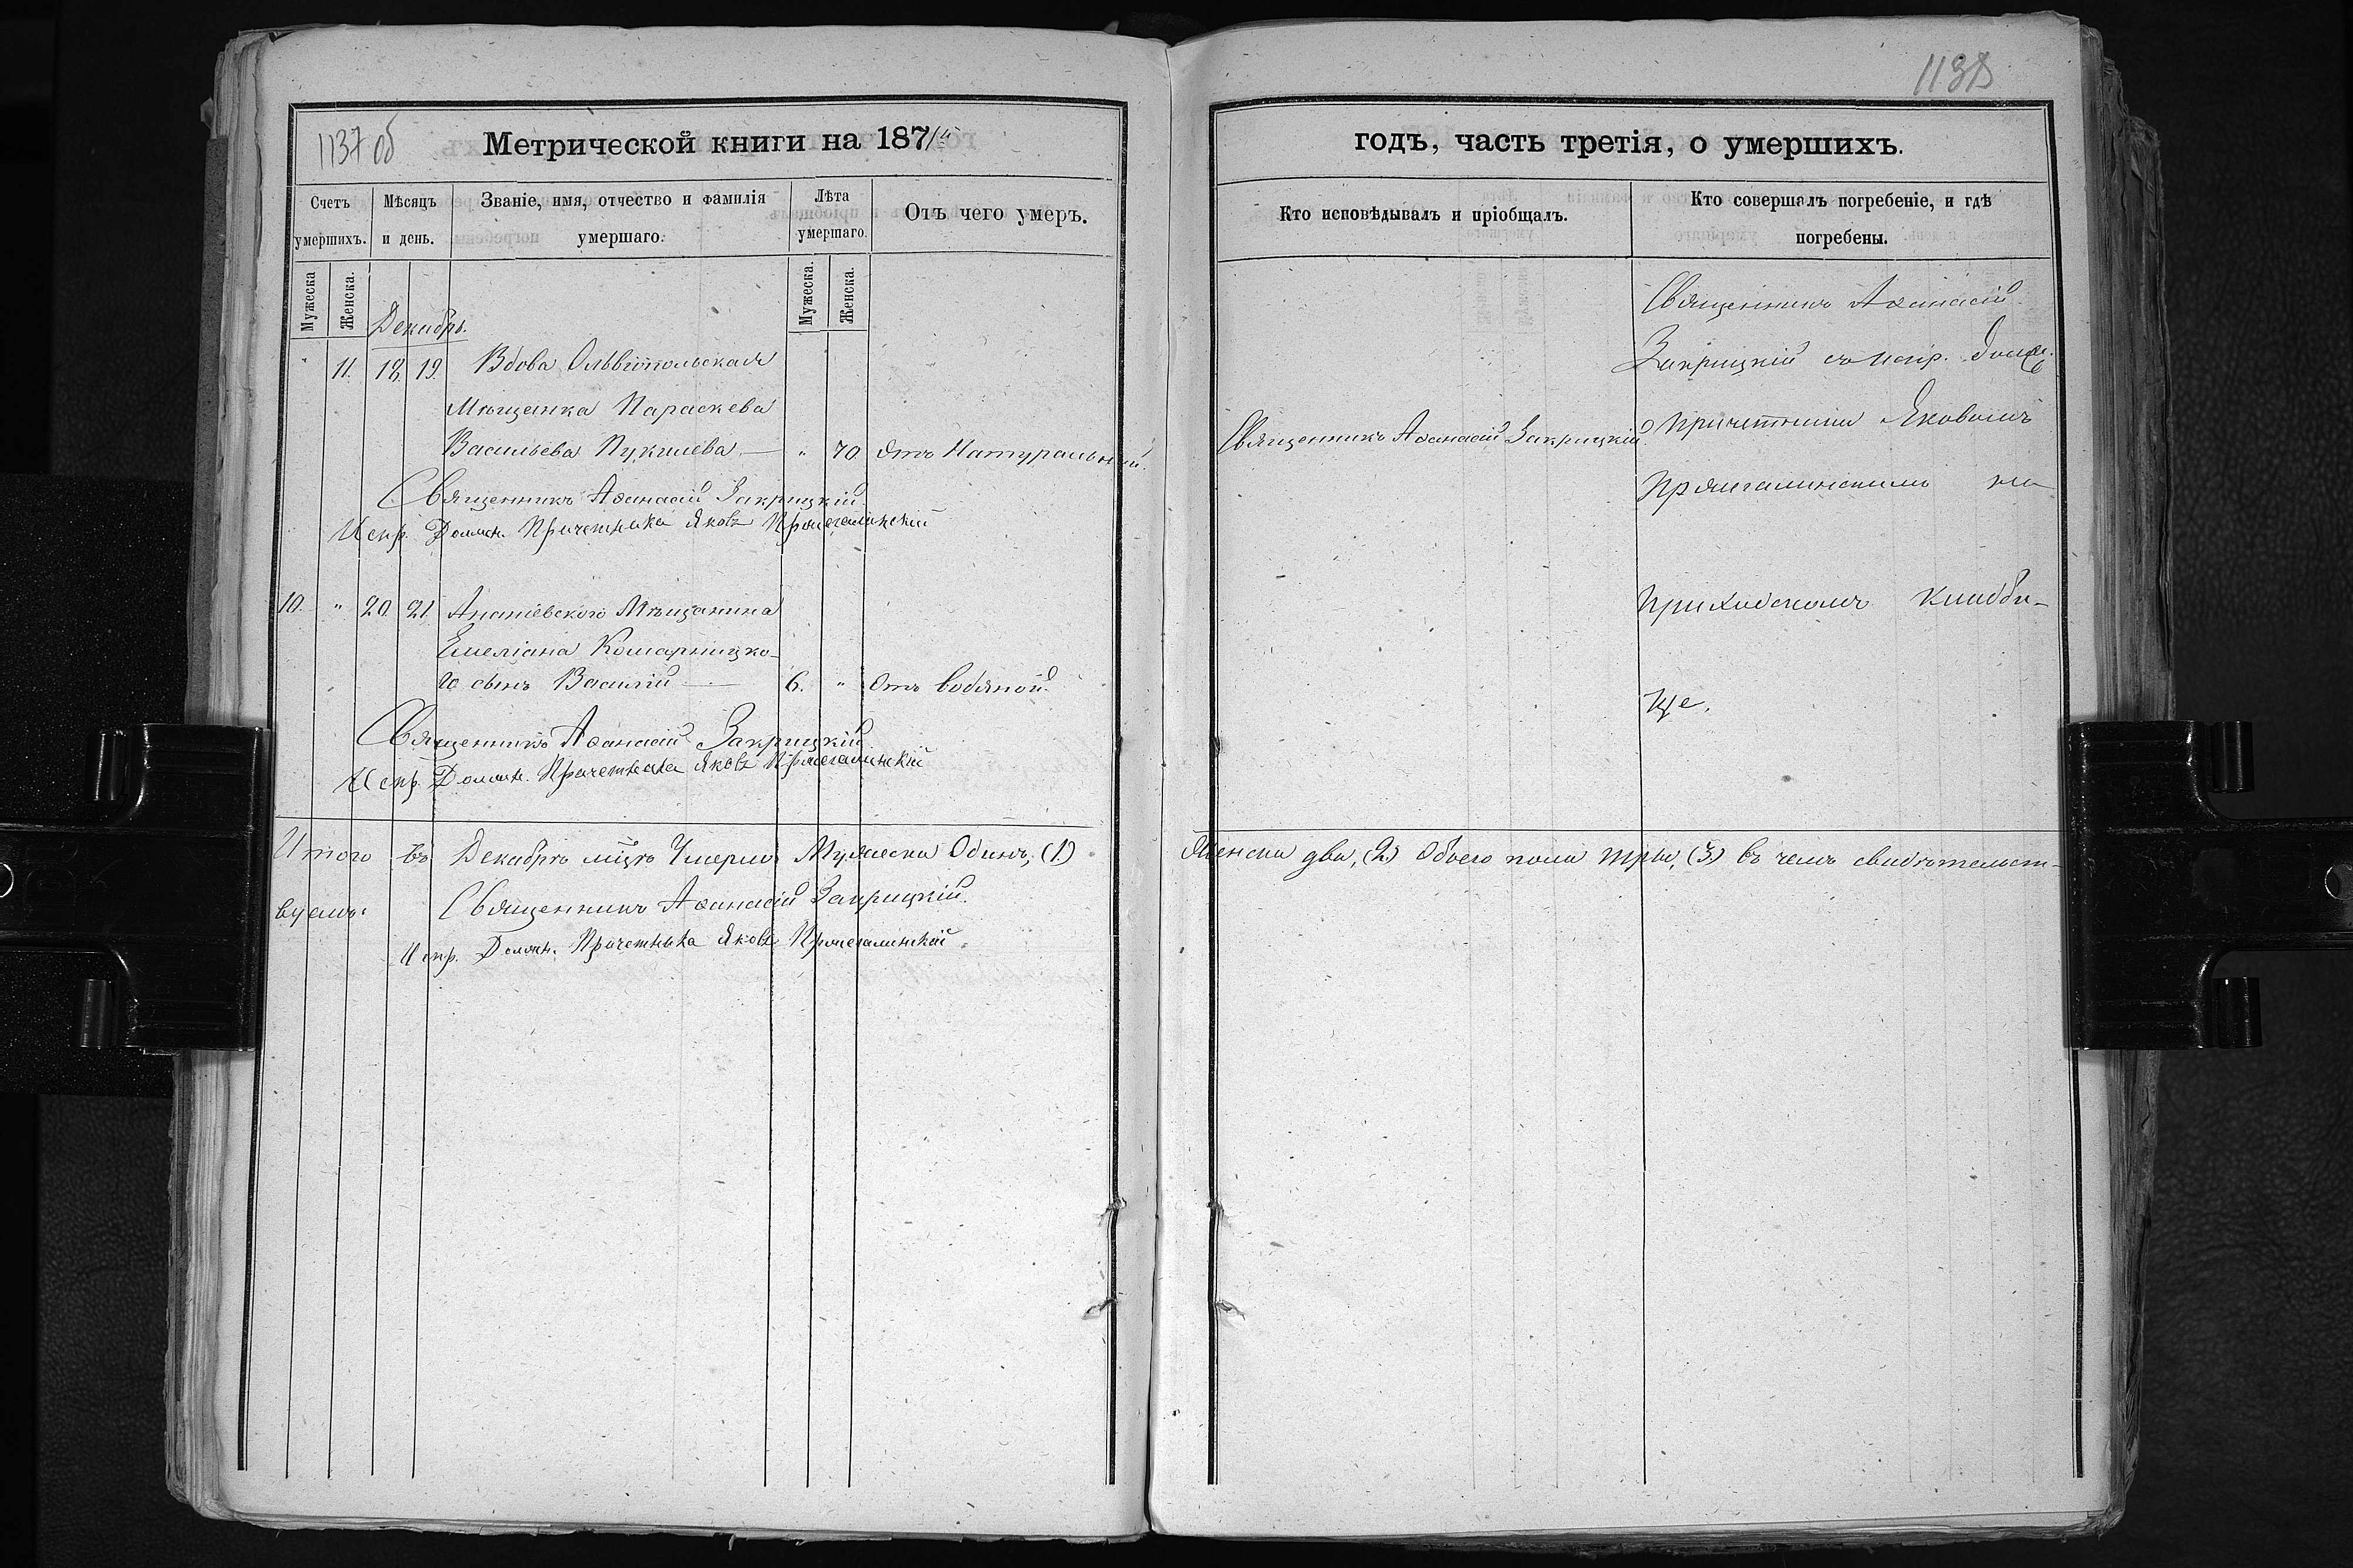 1137 об
Метрической книги на 187
Счетъ умершихъ.
Мѣсяцъ и день.
Званіе, имя, отчество и фамилія умершаго.
Лѣта умершаго.
Отъ чего умеръ.
Мужеска
Женска.
Мужеска.
Женска.
Декабрь.
" 11. 18 19 Вдова Ольвіопольская
Мѣщанка Параскева
Васильева Пукилева — " 70 Отъ Натуральной.
Священникъ Аѳанасій Закрицкій
Испр. Должн. Причетника Яковъ
10. " 20 21 Ананіевского Мѣщанина
Емеліана Комарницко-
го сынъ Василій — 6. " Отъ водяной.
Священникъ Аѳанасій Закрицкій
Испр. Должн. Причетника Яковъ
Итого въ Декабрѣ мцѣ Умерло Мужеска Одинъ, (1)
вуемъ: Священникъ Аѳанасій Закрицкій.
Испр. Должн. Причетника Яковъ
1138
годъ, часть третія, о умершихъ.
Кто исповѣдывалъ и пріобщалъ.
Кто совершалъ погребеніе, и гдѣ погребены.
Священникъ Аѳанасій
Закрицкій съ испр. долж.
Священникъ Аѳанасій Закрицкій
Причетника Яковомъ
на
приходскомъ кладби-
ще.
Женска два, (2) Обоего пола три, (3) въ чемъ свидѣтельст-